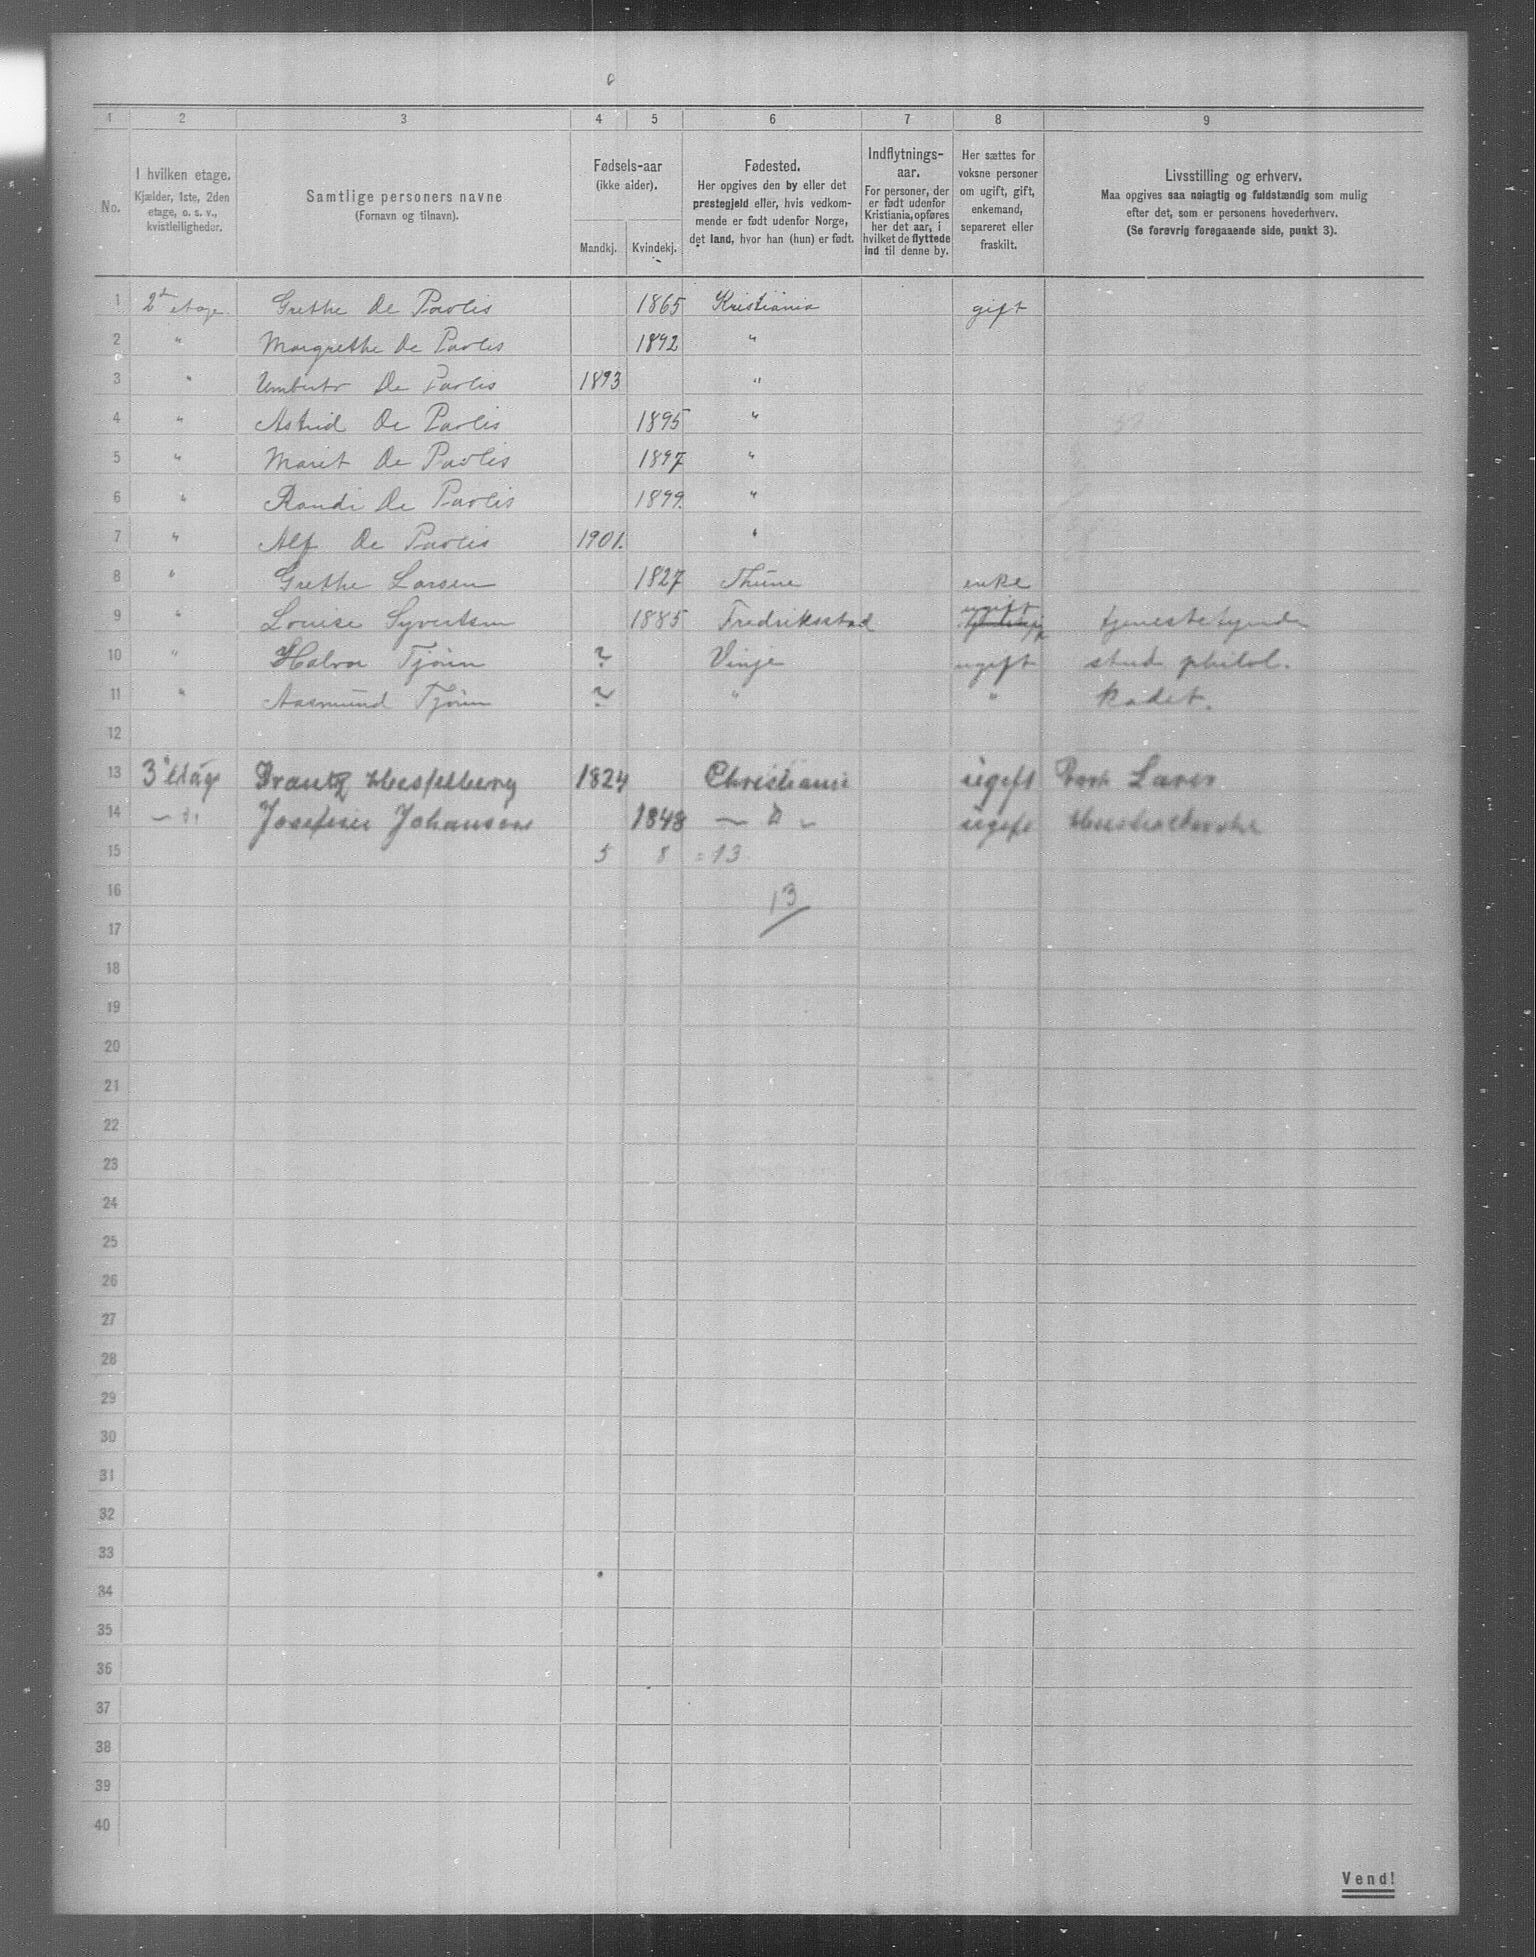 1 2 3 4 5 6 7 8 9
No.
I hvilken etage.
Kjælder, 1ste, 2den
etage, o. s. v.,
kvistleiligheder.
Samtlige personers navne
(Fornavn og tilnavn).
Fødsels-aar
(ikke alder).
Mandkj. Kvindekj.
Fødested.
Her opgives den by eller det
prestegjeld eller, hvis vedkom-
mende er født udenfor Norge,
det land, hvor han (hun) er født.
Indflytnings-
aar.
For personer, der
er født udenfor
Kristiania, opføres
her det aar, i
hvilket de flyttede
ind til denne by.
Her sættes for
voksne personer
om ugift, gift,
enkemand,
separeret eller
fraskilt.
Livsstilling og erhverv.
Maa opgives saa nøiagtig og fuldstændig som mulig
efter det, som er personens hovederhverv.
(Se forøvrig foregaaende side, punkt 3).
1 2d etage. Grethe De Paolis 1865 Kristiania gift
2 " Margrethe De Paolis 1892 "
3 " Umberto De Paolis 1893 "
4 " Astrid De Paolis 1895 "
5 " Marit De Paolis 1897 "
6 " Randi De Paolis 1899. "
7 " Alf De Paolis 1901. "
8 " Grethe Larsen 1827 Thune enke
9 " Louise Syvertsen 1885 Fredriksstad ugift tjenestetjende
10 " Halvor Tjönn ? Vinje ugift stud philol.
11 " Aasmund Tjönn ? " " kadet.
12
13 3 etag Frantz Hesselberg 1824 Christiania ugift
14 - " - Josefine Johansen 1848 - " - ugift
15 5 8 = 13
16 13
17
18
19
20
21
22
23
24
25
26
27
28
29
30
31
32
33
34
35
36
37
38
39
40
Vend!